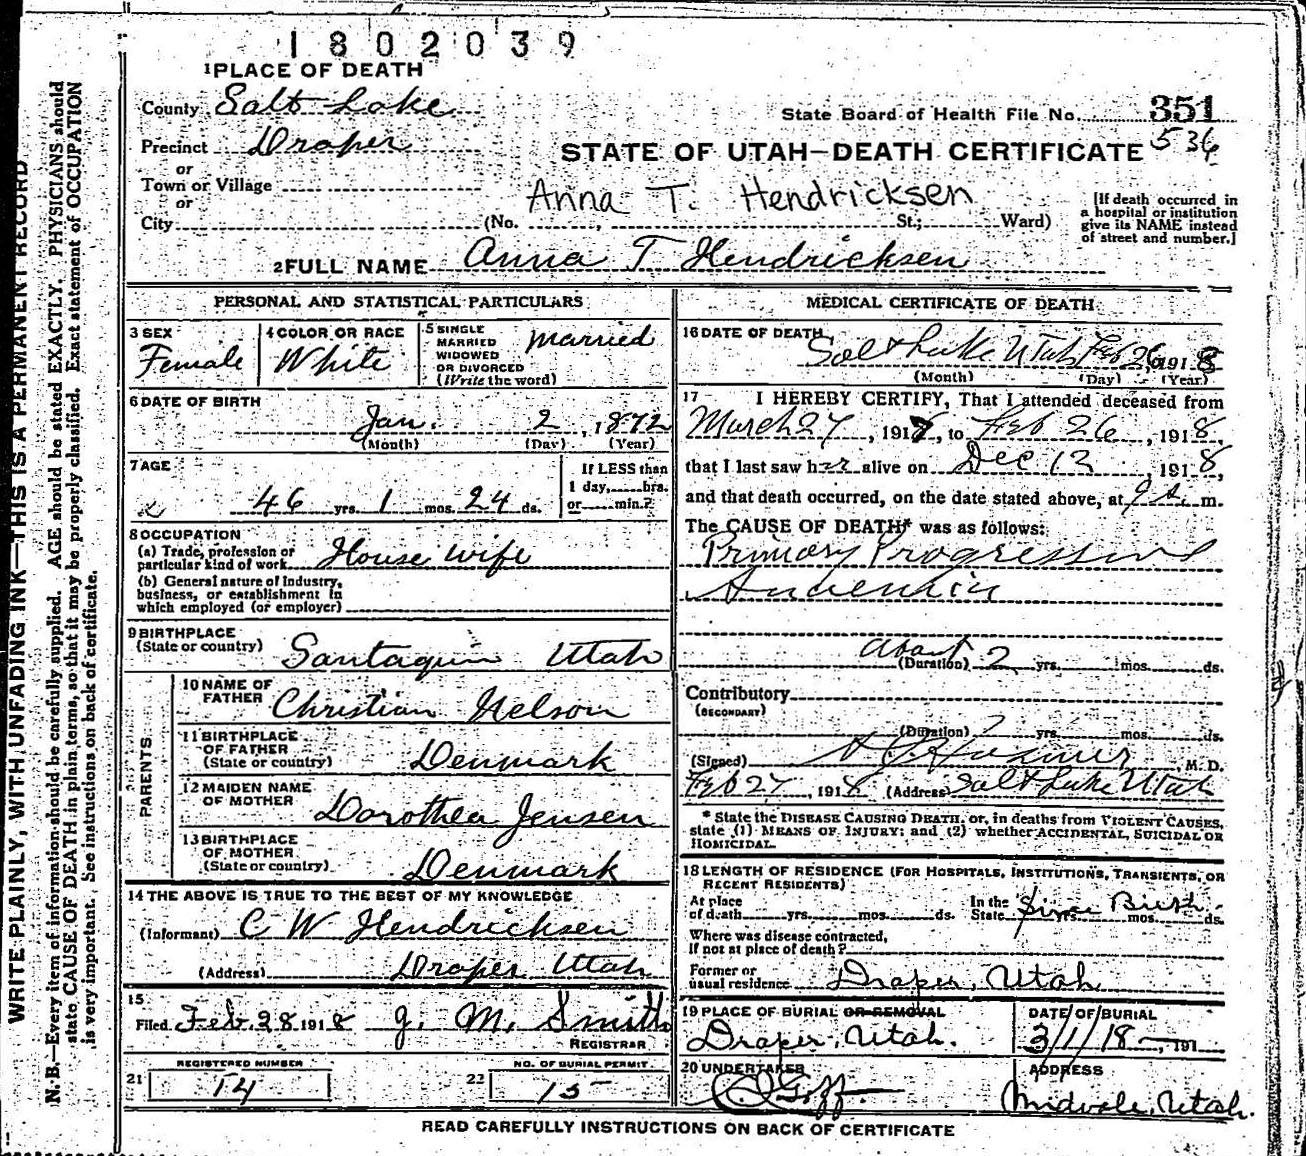 1802039
1 PLACE OF DEATH
County Salt Lake
State Board of Health File No. 351
Precinct Draper
536
STATE OF UTAH—DEATH CERTIFICATE
or
Town or Village
or
Anna T. Hendricksen
City (No. , St.; Ward)
[If death occurred in
a hospital or institution
give its NAME instead
of street and number.]
2 FULL NAME Anna T Hendricksen
PERSONAL AND STATISTICAL PARTICULARS
3 SEX
Female
4 COLOR OR RACE
White
5 SINGLE
MARRIED
WIDOWED
OR DIVORCED
(Write the word)
Married
6 DATE OF BIRTH
Jan. 2, 1872
(Month) (Day) (Year)
7 AGE
46 yrs. 1 mos. 24 ds.
If LESS than
1 day, hrs.
or min.?
8 OCCUPATION
(a) Trade, profession or
particular kind of work House wife
(b) General nature of Industry,
business, or establishment in
which employed (or employer)
9 BIRTHPLACE
(State or country) Santaquin Utah
PARENTS
10 NAME OF
FATHER Christian Nelson
11 BIRTHPLACE
OF FATHER
(State or country) Denmark
12 MAIDEN NAME
OF MOTHER Dorothea Jensen
13 BIRTHPLACE
OF MOTHER
(State or country) Denmark
14 THE ABOVE IS TRUE TO THE BEST OF MY KNOWLEDGE
(Informant) C W Hendricksen
(Address) Draper Utah
15
Filed Feb 28 1918 J. M. Smith
REGISTRAR
REGISTERED NUMBER
21 14
NO. OF BURIAL PERMIT
22 15
MEDICAL CERTIFICATE OF DEATH
16 DATE OF DEATH
Salt Lake Utah Feb 26 1918
(Month) (Day) (Year)
17 I HEREBY CERTIFY, That I attended deceased from
March 27, 1917, to Feb 26, 1918,
that I last saw her alive on Dec 12, 1918,
and that death occurred, on the date stated above, at 9 a. m.
The CAUSE OF DEATH* was as follows:
Primary Progressive
About
(Duration) 2 yrs. mos. ds.
Contributory
(SECONDARY)
(Duration) yrs. mos. ds.
(Signed) M. D.
Feb 27, 1918 (Address) Salt Lake Utah
* State the DISEASE CAUSING DEATH, or, in deaths from VIOLENT CAUSES,
state (1) MEANS OF INJURY; and (2) whether ACCIDENTAL, SUICIDAL OR
HOMICIDAL.
18 LENGTH OF RESIDENCE (FOR HOSPITALS, INSTITUTIONS, TRANSIENTS, OR
RECENT RESIDENTS)
At place
of death yrs. mos. ds.
In the
State Since Birth. mos. ds.
Where was disease contracted,
If not at place of death?
Former or
usual residence Draper, Utah
19 PLACE OF BURIAL OR REMOVAL
Draper, Utah.
DATE OF BURIAL
3/1/18, 191
20 UNDERTAKER
Goff
ADDRESS
Midvale, Utah.
READ CAREFULLY INSTRUCTIONS ON BACK OF CERTIFICATE
WRITE PLAINLY, WITH UNFADING INK—THIS IS A PERMANENT RECORD
N. B.—Every item of information should be carefully supplied. AGE should be stated EXACTLY. PHYSICIANS should
state CAUSE OF DEATH in plain terms, so that it may be properly classified. Exact statement of OCCUPATION
is very important. See instructions on back of certificate.